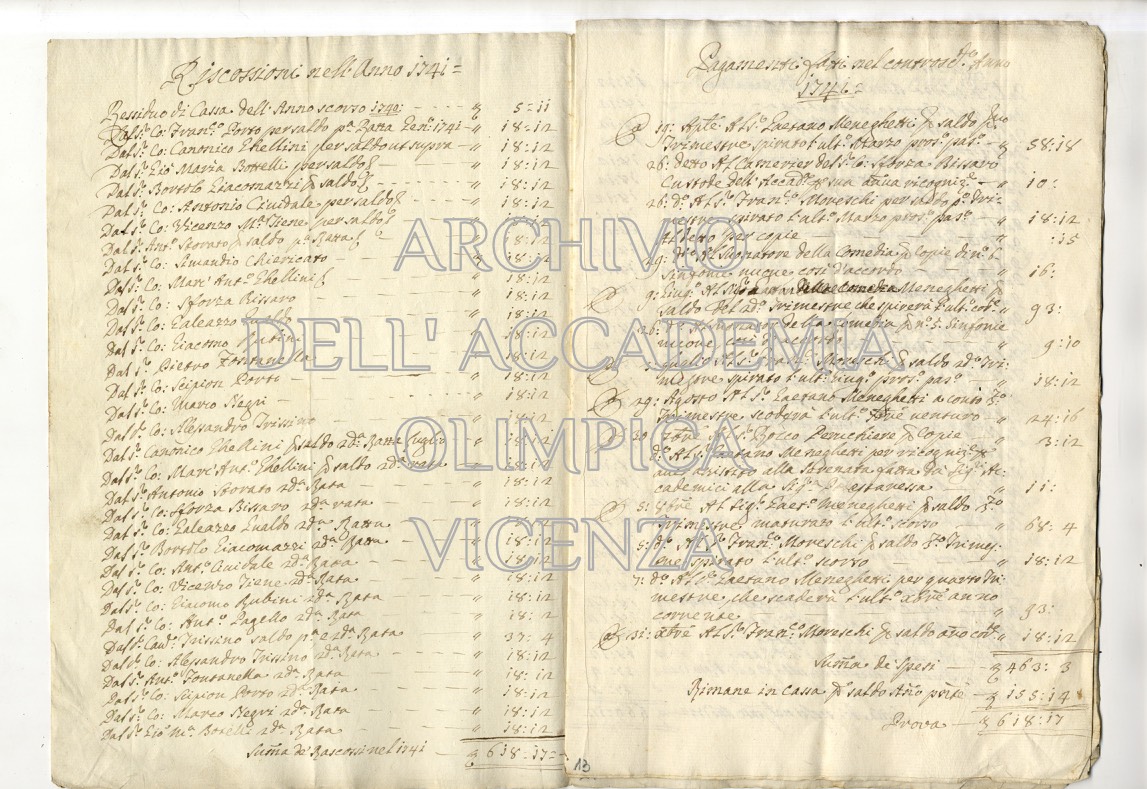 Riscossioni nell'Anno 1741=
Residuo di Cassa dell'Anno scorso 1740: 5:11
Dal S.r Co: Fran.co Porto per saldo p.a Ratta Zen.o 1741 " 18:12
Dal S.r Co: Canonico Ghellini per saldo ut supra " 18:12
Dal S.r Gio Maria Bottelli per saldo " 18:12
Dal S.r Bortolo Giacomazzi saldo " 18:12
Dal S.r Co: Antonio Cividale per saldo " 18:12
Dal S.r Co: Vicenzo M.a Tiene per saldo " 18:12
Dal S.r Ant.o Stovato saldo p.a Ratta " 18:12
Dal S.r Co: Amandio Chiericato 18:12
Dal S.r Co: Marc'Ant.o Ghellini 18:12
Dal S.r Co: Sforza Bissaro 18:12
Dal S.r Co: Galeazzo 18:12
Dal S.r Co: Giacomo 18:12
Dal S.r Pietro Fontanella 18:12
Dal S.r Co: Scipion Porto " 18:12
Dal S.r Co: Marco Negri " 18:12
Dal S.r Co: Alessandro Trissino 18:12
Dal S.r Canonico Ghellini saldo 2da Ratta Luglio 18:12
Dal S.r Co: Marc'Ant.o Ghellini saldo 2da rata 18:12
Dal S.r Antonio Stovato 2da Rata " 18:12
Dal S.r Co: Sforza Bissaro 2da rata " 18:12
Dal S.r Co: Galeazzo Gualdo 2da Ratta " 18:12
Dal S.r Bortolo Giacomazzi 2da Ratta " 18:12
Dal S.r Co: Ant.o Cividale 2da Rata " 18:12
Dal S.r Co: Vicenzo Tiene 2da Rata " 18:12
Dal S.r Co: Giacomo Rubini 2da Rata " 18:12
Dal S.r Co: Ant.o Pagello 2da Rata " 18:12
Dal S.r Cav.r Trissino saldo p.a e 2da Rata " 37:4
Dal S.r Co: Alessandro Trissino 2da Rata " 18:12
Dal S.r Ant.o Fontanella 2da Rata " 18:12
Dal S.r Co: Scipion Porto 2da Rata " 18:12
Dal S.r Co: Marco Negri 2da Rata " 18:12
Dal S.r Gio M.a Botelli 2da Rata " 18:12
Summa de Rascossi nel 1741 618:17
13
Pagamenti fatti nel Anno
1741=
19: Aple Al S.r Gaetano Meneghetti saldo
Trimestre spirato l'ult.o Marzo pros.o pas.o 58:18
26: detto Al Camerier del S.r Co: Sforza Bissaro
Custode dell'Accad.a sua annua ricogniz.e 10:
26: d.o Al S.r Fran.co Moreschi per saldo p.o Tri-
mestre spirato l'ult.o Marzo pros.o pas.o 18:12
Al detto per copie :15
29: d.o Al Suonatore della Comedia copie di n.o 6
Sinfonie nuove così d'acordo 16:
9: Giug.o Al S.r Meneghetti
saldo del 2do Trimestre che spirerà l'ult.o cor.e 93:
26: d.o Al Suonator della Comedia n.o 5: Sinfonie
nuove così d'acordo 9:10
Luglio Al S.r Fran.co Moreschi saldo 2do Tri-
mestre spirato l'ult.o Giug.o pros.o pas.o 18:12
29: Agosto Al S.r Gaetano Meneghetti a conto 3.o
Trimestre scoderà l'ult.o 7bre venturo 24:16
30 7bre Al S.r Rocco Penchiere copie 3:12
d.o Al S.r Gaetano Meneghetti per ricogniz.e
aver assistito alla Serenata fatta da Sig.ri Ac-
cademici alla Sig.ra 11:
3: 8bre Al Sig.r Gaet.o Meneghetti saldo 3.o
Trimestre maturato l'ult.o scorso 68:4
5: d.o Al S.r Fran.co Moreschi saldo 3.o Trimes-
tre spirato l'ult.o scorso " 18:12
7: d.o Al S.r Gaetano Meneghetti per quarto Tri-
mestre che scaderà l'ult.o xbre anno
corrente " 93:
31: xbre Al S.r Fran.co Moreschi saldo año cor.e " 18:12
Summa de Spesi 463:3
Rimane in Cassa saldo Año pnte 155:14
Prova 618:17
ARCHIVIO
DELL' ACCADEMIA
OLIMPICA
VICENZA